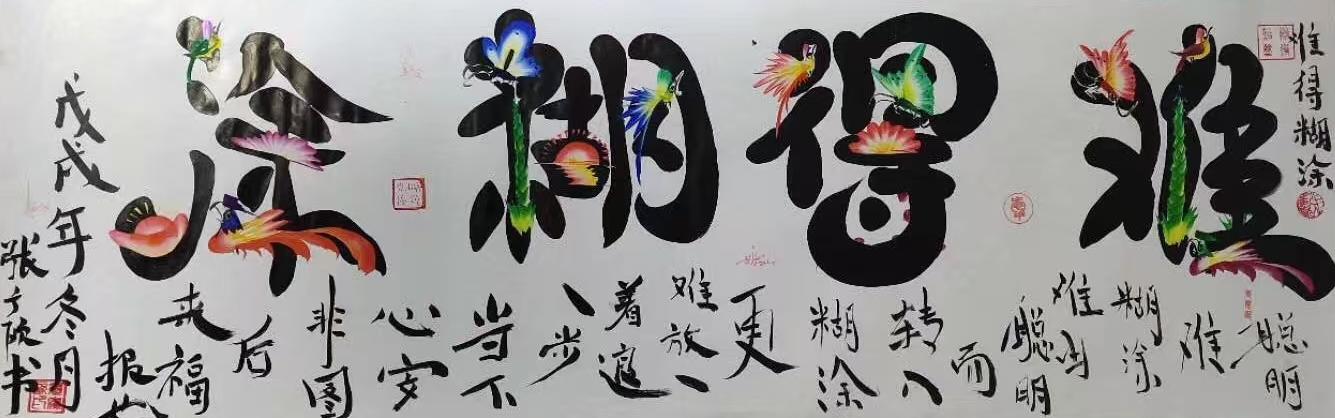 难得糊涂
难得糊涂
聪明
难
糊涂
难由
聪明
而
转入
糊涂
更
难放一
着退
一步
当下
心安
非图
后
来福
报也
戊戌年冬月
张书